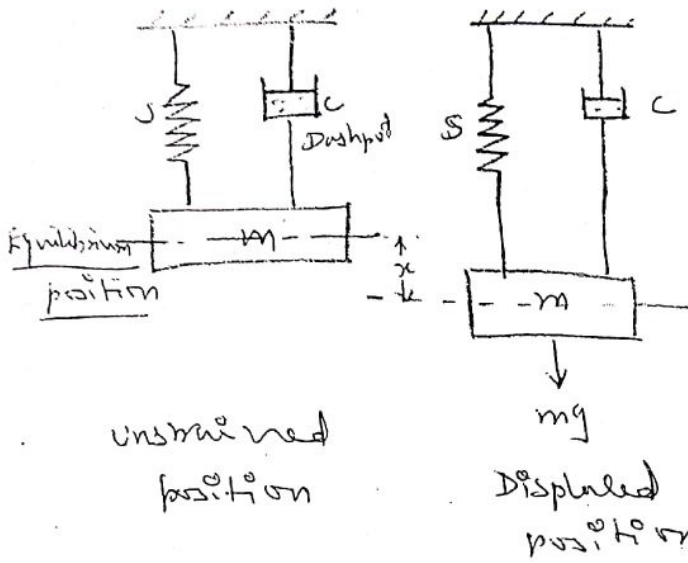 S
C
Dashpot
m
Equilibrium
position
x
unstrained
position
S
C
m
mg
Displaced
position